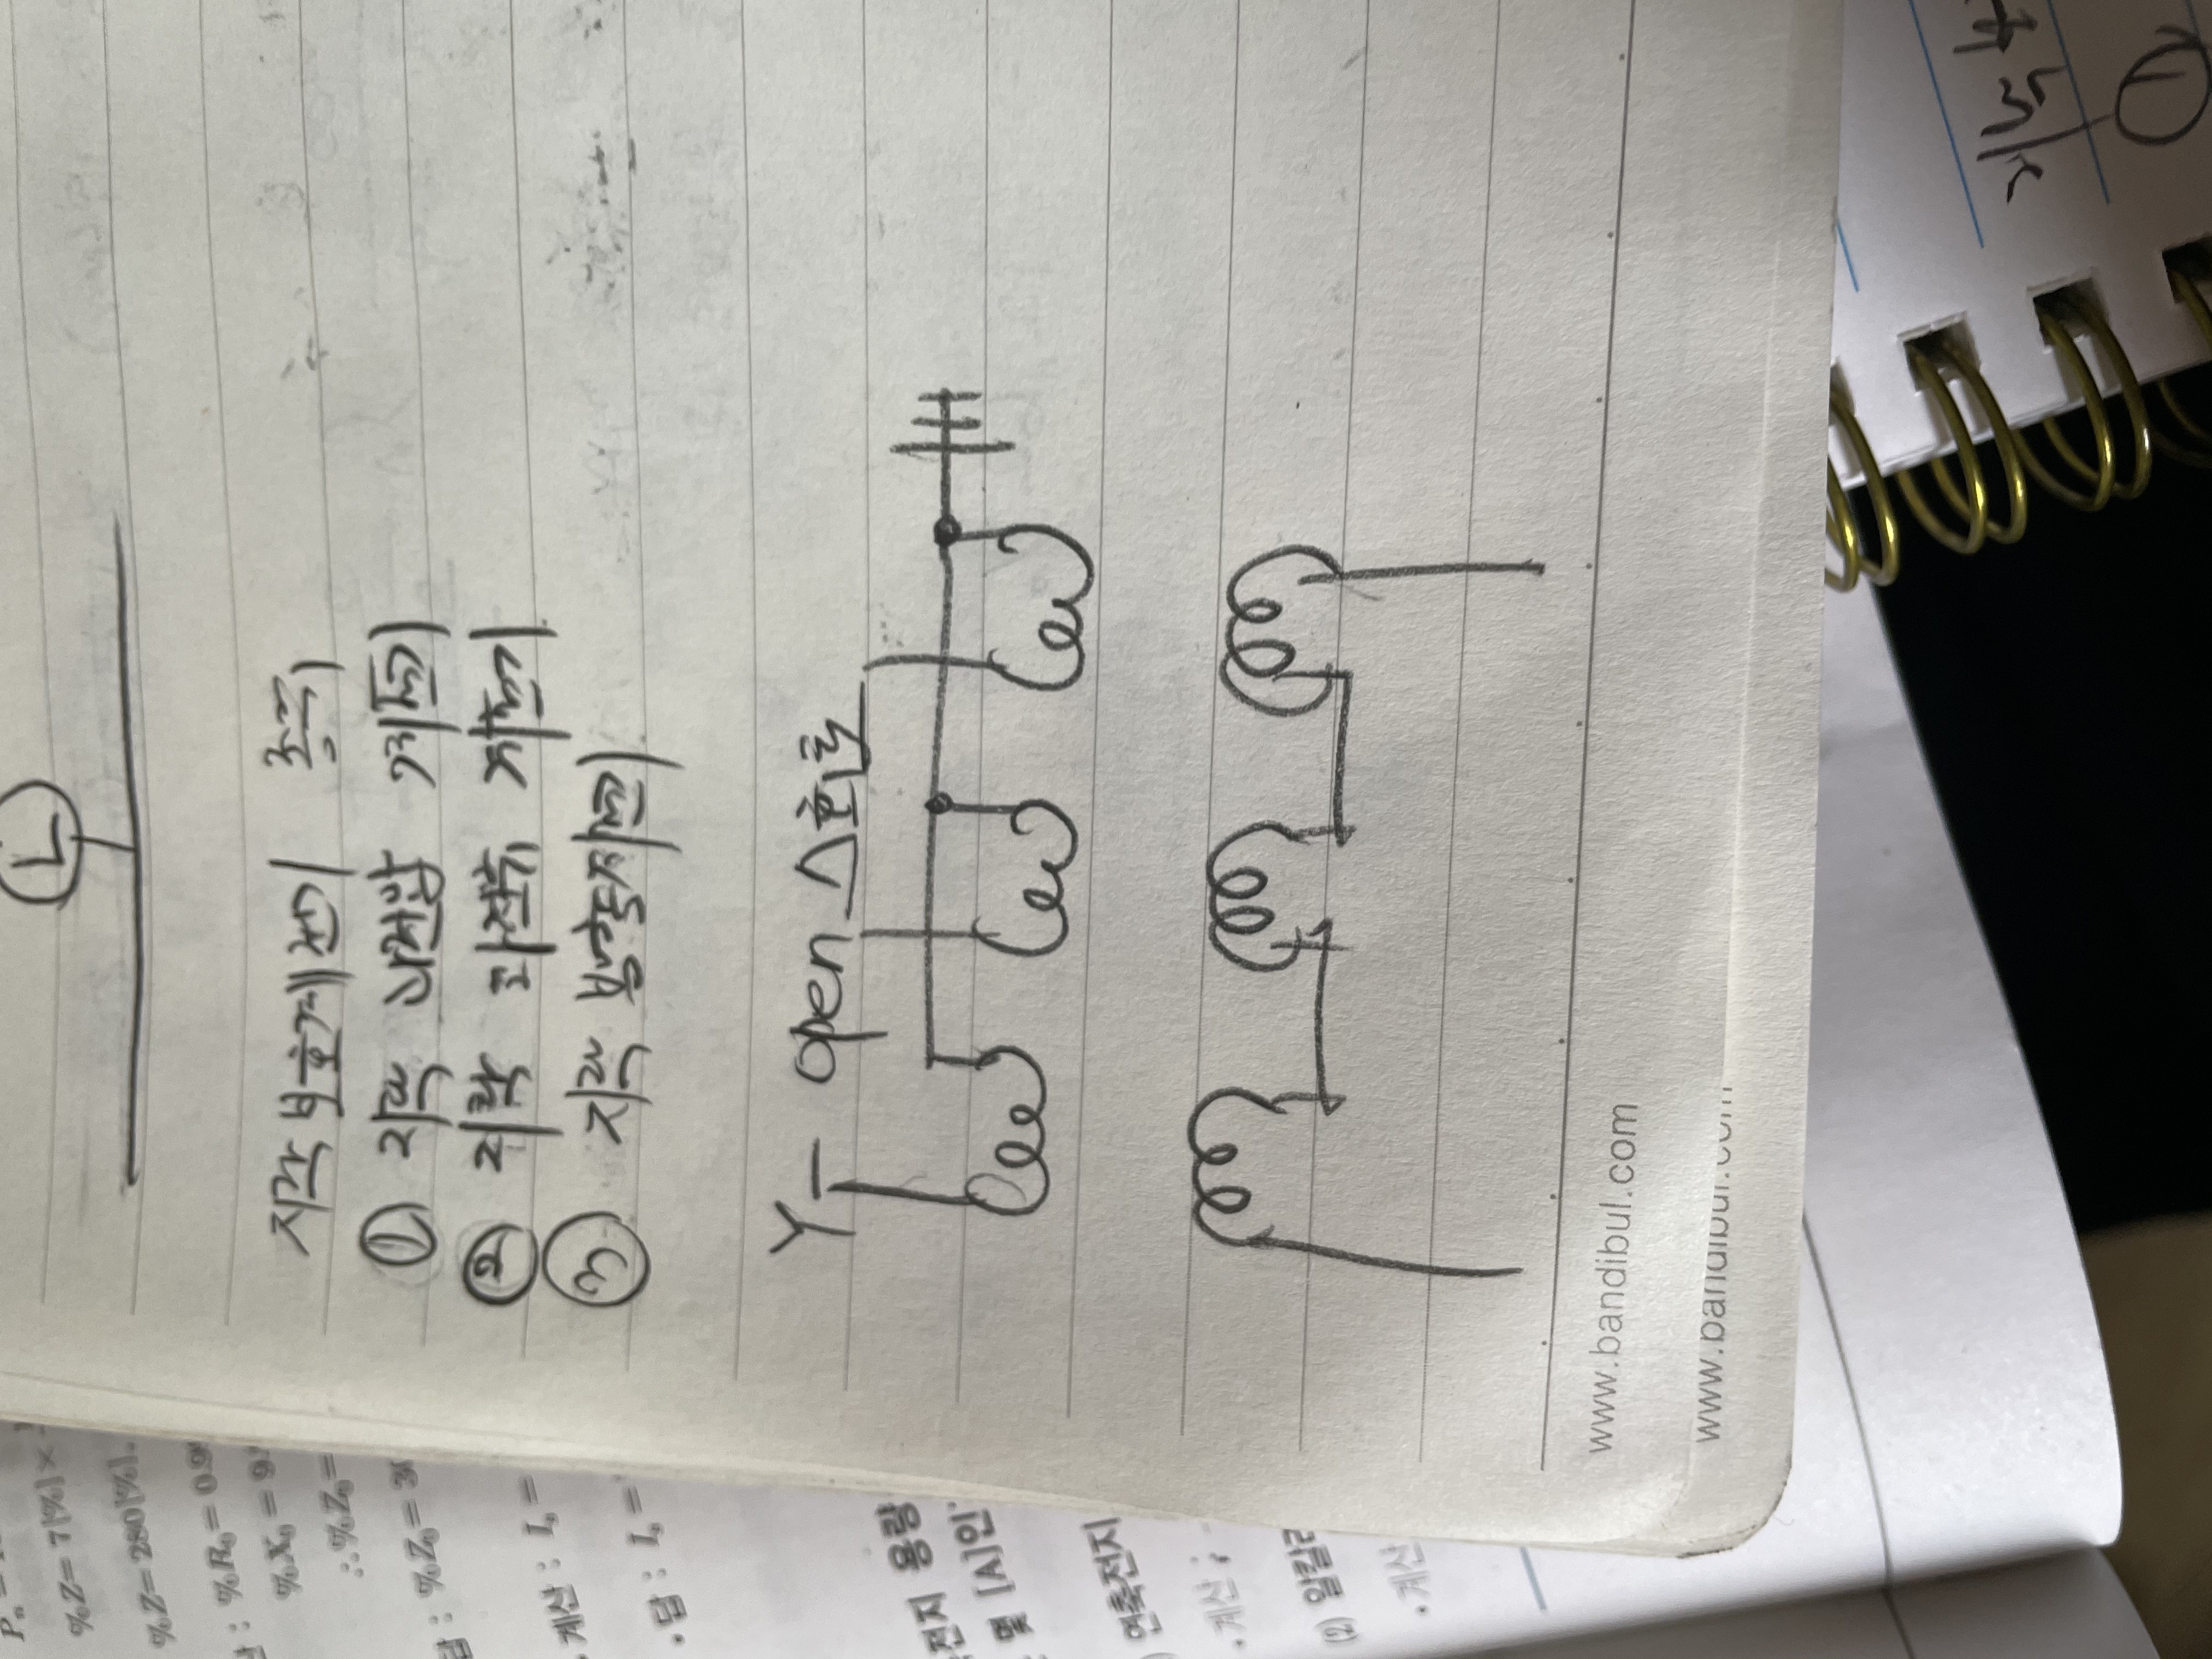 L
지락 보호계전기 종류
① 지락 과전압 계전기
② 지락 과전류 계전기
③ 지락 방향계전기
Y - open △ 회로
www.bandibul.com
www.bandibul.com
%Z = 7[%] ×
%Z = 280[%].
: %R₀ = 0.9
%X₀ = 9.
∴ %Z₀ =
답 : %Z₀ = 3
계산 : Iₛ =
• 답 : Iₛ =
전지 용량
몇 [A]인
연축전지
• 계산 :
(2) 알칼리
• 계산
①